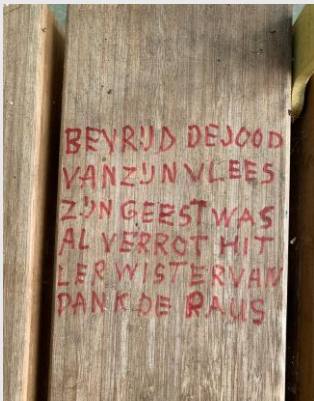 BEVRIJD DE JOOD
VAN ZIJN VLEES
ZIJN GEEST WAS
AL VERROT HIT
LER WIST ER VAN
DANK DE RAUS